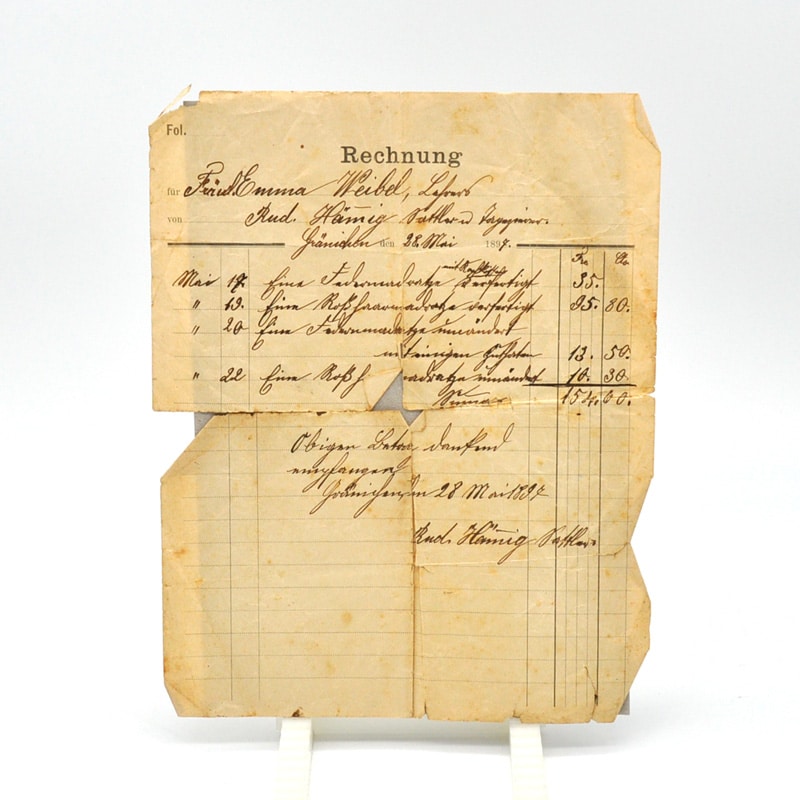 Fol.
Rechnung
für Fräul. Emma Weibel, Lehrers
von Rud. Hämig Sattler u Tappezier.
Gränichen den 28. Mai 1897.
Fr. Cts.
Mai 17. Eine Federmadratze verfertigt 35.
" 19. Eine Roßhaarmadratze verfertigt 95. 80.
" 20 Eine Federmadratze umändert
mit einigen Zuthaten 13. 50.
" 22 Eine Roßh adratze umändert 10. 30
Summa 154. 60.
Obigen Betra dankend
empfangen
Gränichen, 28 Mai 1897
Rud. Hämig Sattler.